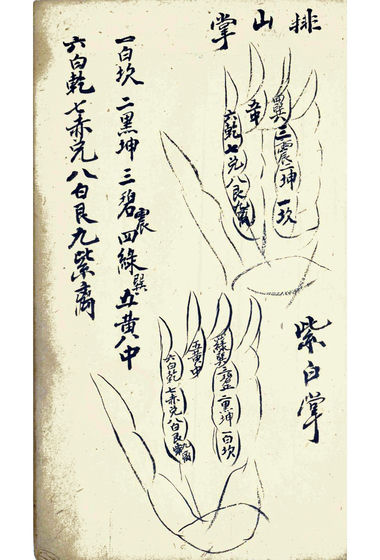 排山掌
四巽三震二坤一坎
五中
六乾七兑八艮九离
紫白掌
四綠巽三碧震二黑坤一白坎
五黃中
六白乾七赤兑八白艮九紫离
一白坎二黑坤三碧震四綠巽五黃八中
六白乾七赤兑八白艮九紫离